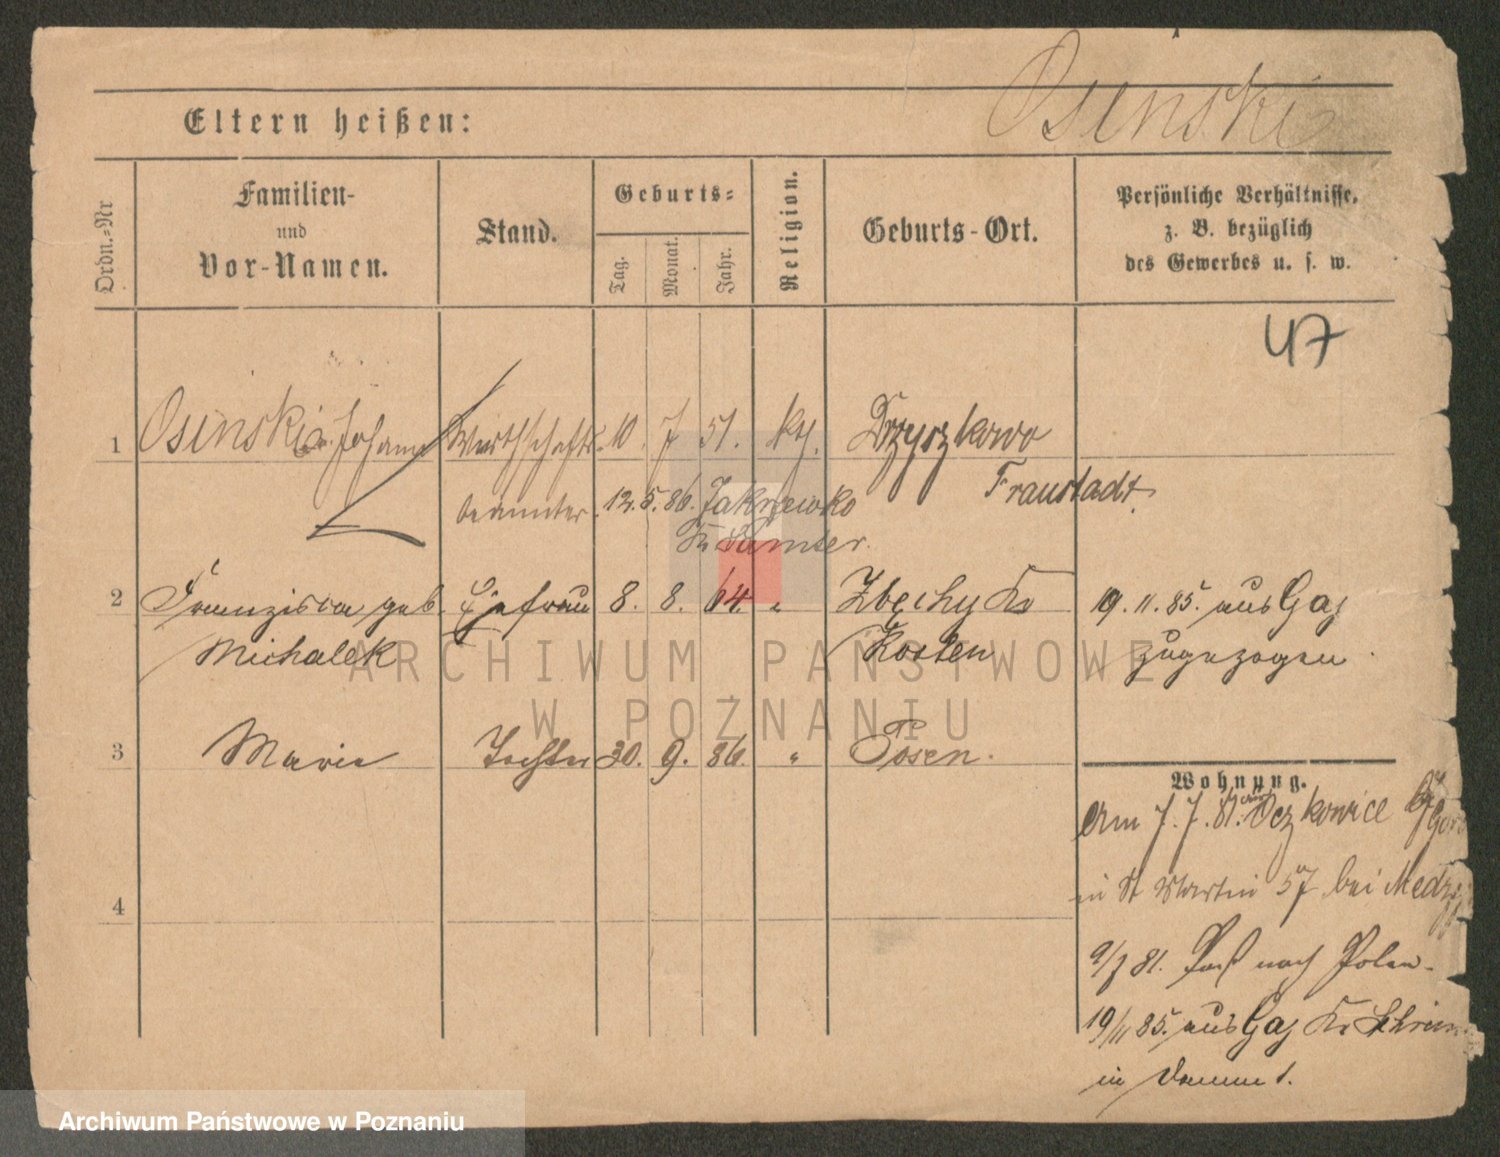 Osinski
Eltern heißen:
Ordn.-Nr
Familien-
und
Vor-Namen.
Stand.
Geburts-
Tag.
Monat.
Jahr.
Religion.
Geburts-Ort.
Persönliche Verhältnisse,
z. B. bezüglich
des Gewerbes u. s. w.
47
1 Osinski Johann Wirthschafts- 10. 7 51. kth. Drzyszkowo
beamter. 12.5.86. Jakzewko Fraustadt.
Kr Samter.
2 Franziska geb. Ehefrau 8. 8. 64. " Zbęchy Kr 19.11.85. aus Gaj
Michalek Kosten zugezogen
3 Marie Tochter 30. 9. 86. " Posen.
Wohnung.
Am 7.7.81.
in St Martin 57 bei
4
9/7 81. Paß nach Polen.
19/11 85. aus Gaj Kr Schrim
in Damm 1.
ARCHIWUM PAŃSTWOWE
W POZNANIU
Archiwum Państwowe w Poznaniu